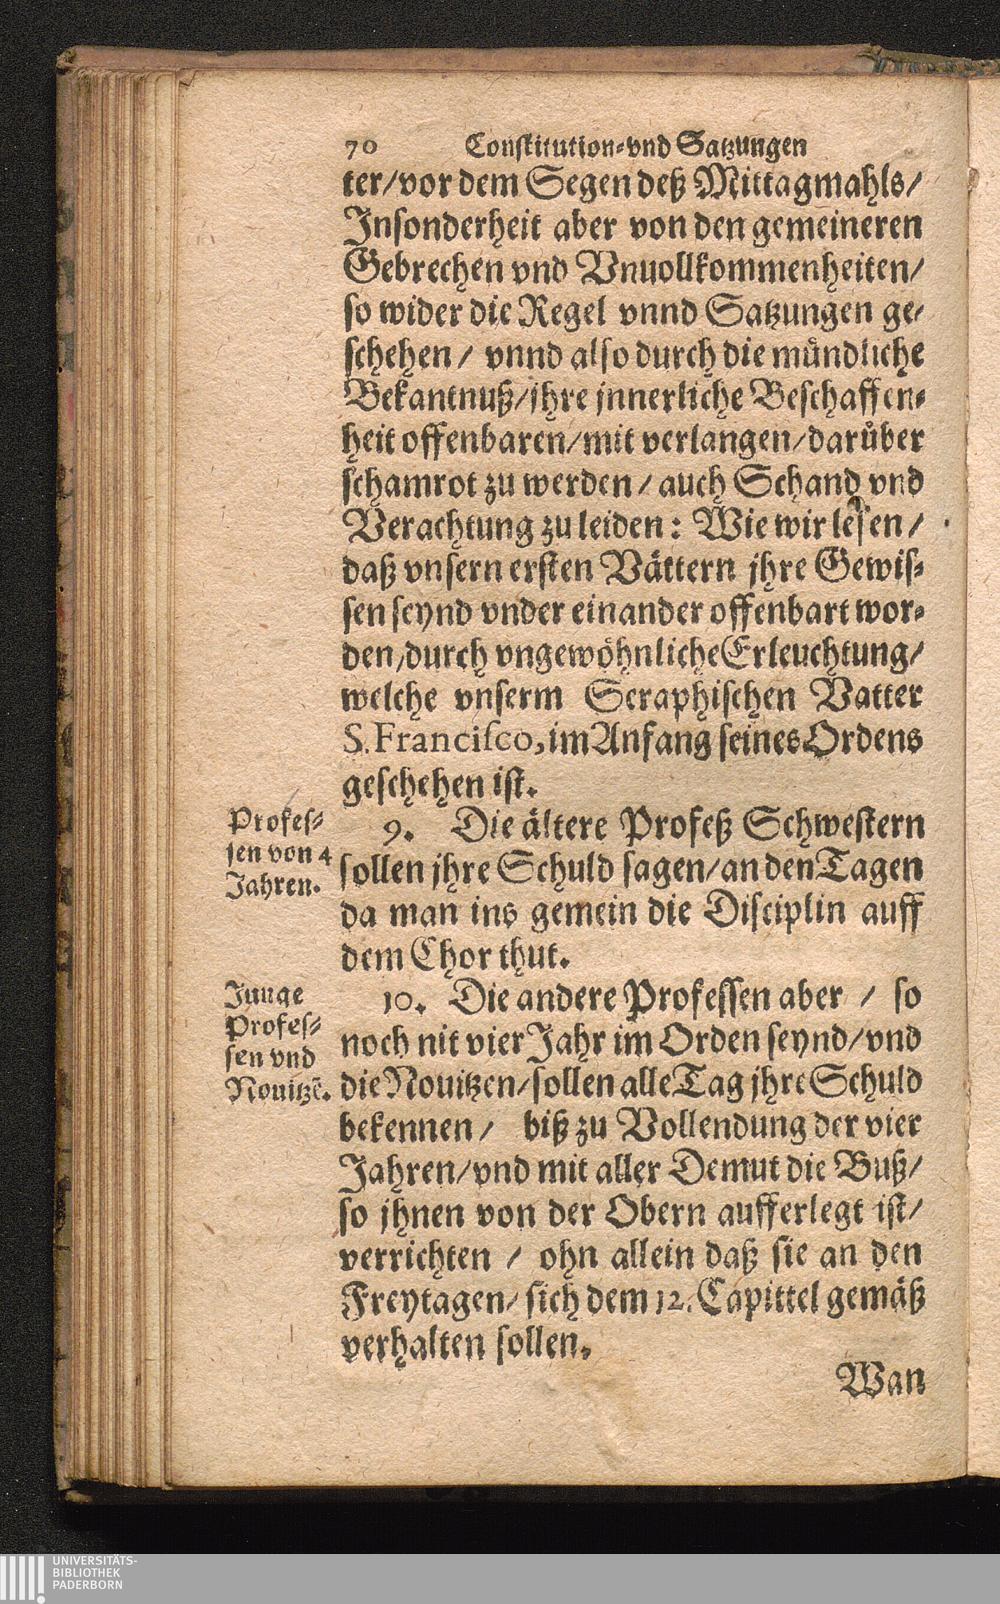 70 Constitution-vnd Satzungen
ter/vor dem Segen deß Mittagmahls/
Insonderheit aber von den gemeineren
Gebrechen vnd Vnuollkommenheiten/
so wider die Regel vnnd Satzungen ge-
schehen/ vnnd also durch die mündliche
Bekantnuß/jhre jnnerliche Beschaffen-
heit offenbaren/mit verlangen/darüber
schamrot zu werden/ auch Schand vnd
Verachtung zu leiden: Wie wir lesen/
daß vnsern ersten Vättern jhre Gewis-
sen seynd vnder einander offenbart wor-
den/durch vngewöhnliche Erleuchtung/
welche vnserm Seraphischen Vatter
S. Francisco, im Anfang seines Ordens
geschehen ist.
Profes-
sen von 4
Jahren.
9. Die ältere Profeß Schwestern
sollen jhre Schuld sagen/an den Tagen
da man ins gemein die Disciplin auff
dem Chor thut.
Junge
Profes-
sen vnd
Nouitzẽ.
10. Die andere Professen aber / so
noch nit vier Jahr im Orden seynd/vnd
die Nouitzen/sollen alle Tag jhre Schuld
bekennen/ biß zu Vollendung der vier
Jahren/vnd mit aller Demut die Buß/
so jhnen von der Obern aufferlegt ist/
verrichten / ohn allein daß sie an den
Freytagen/ sich dem 12. Capittel gemäß
verhalten sollen.
Wan
UNIVERSITÄTS-
BIBLIOTHEK
PADERBORN